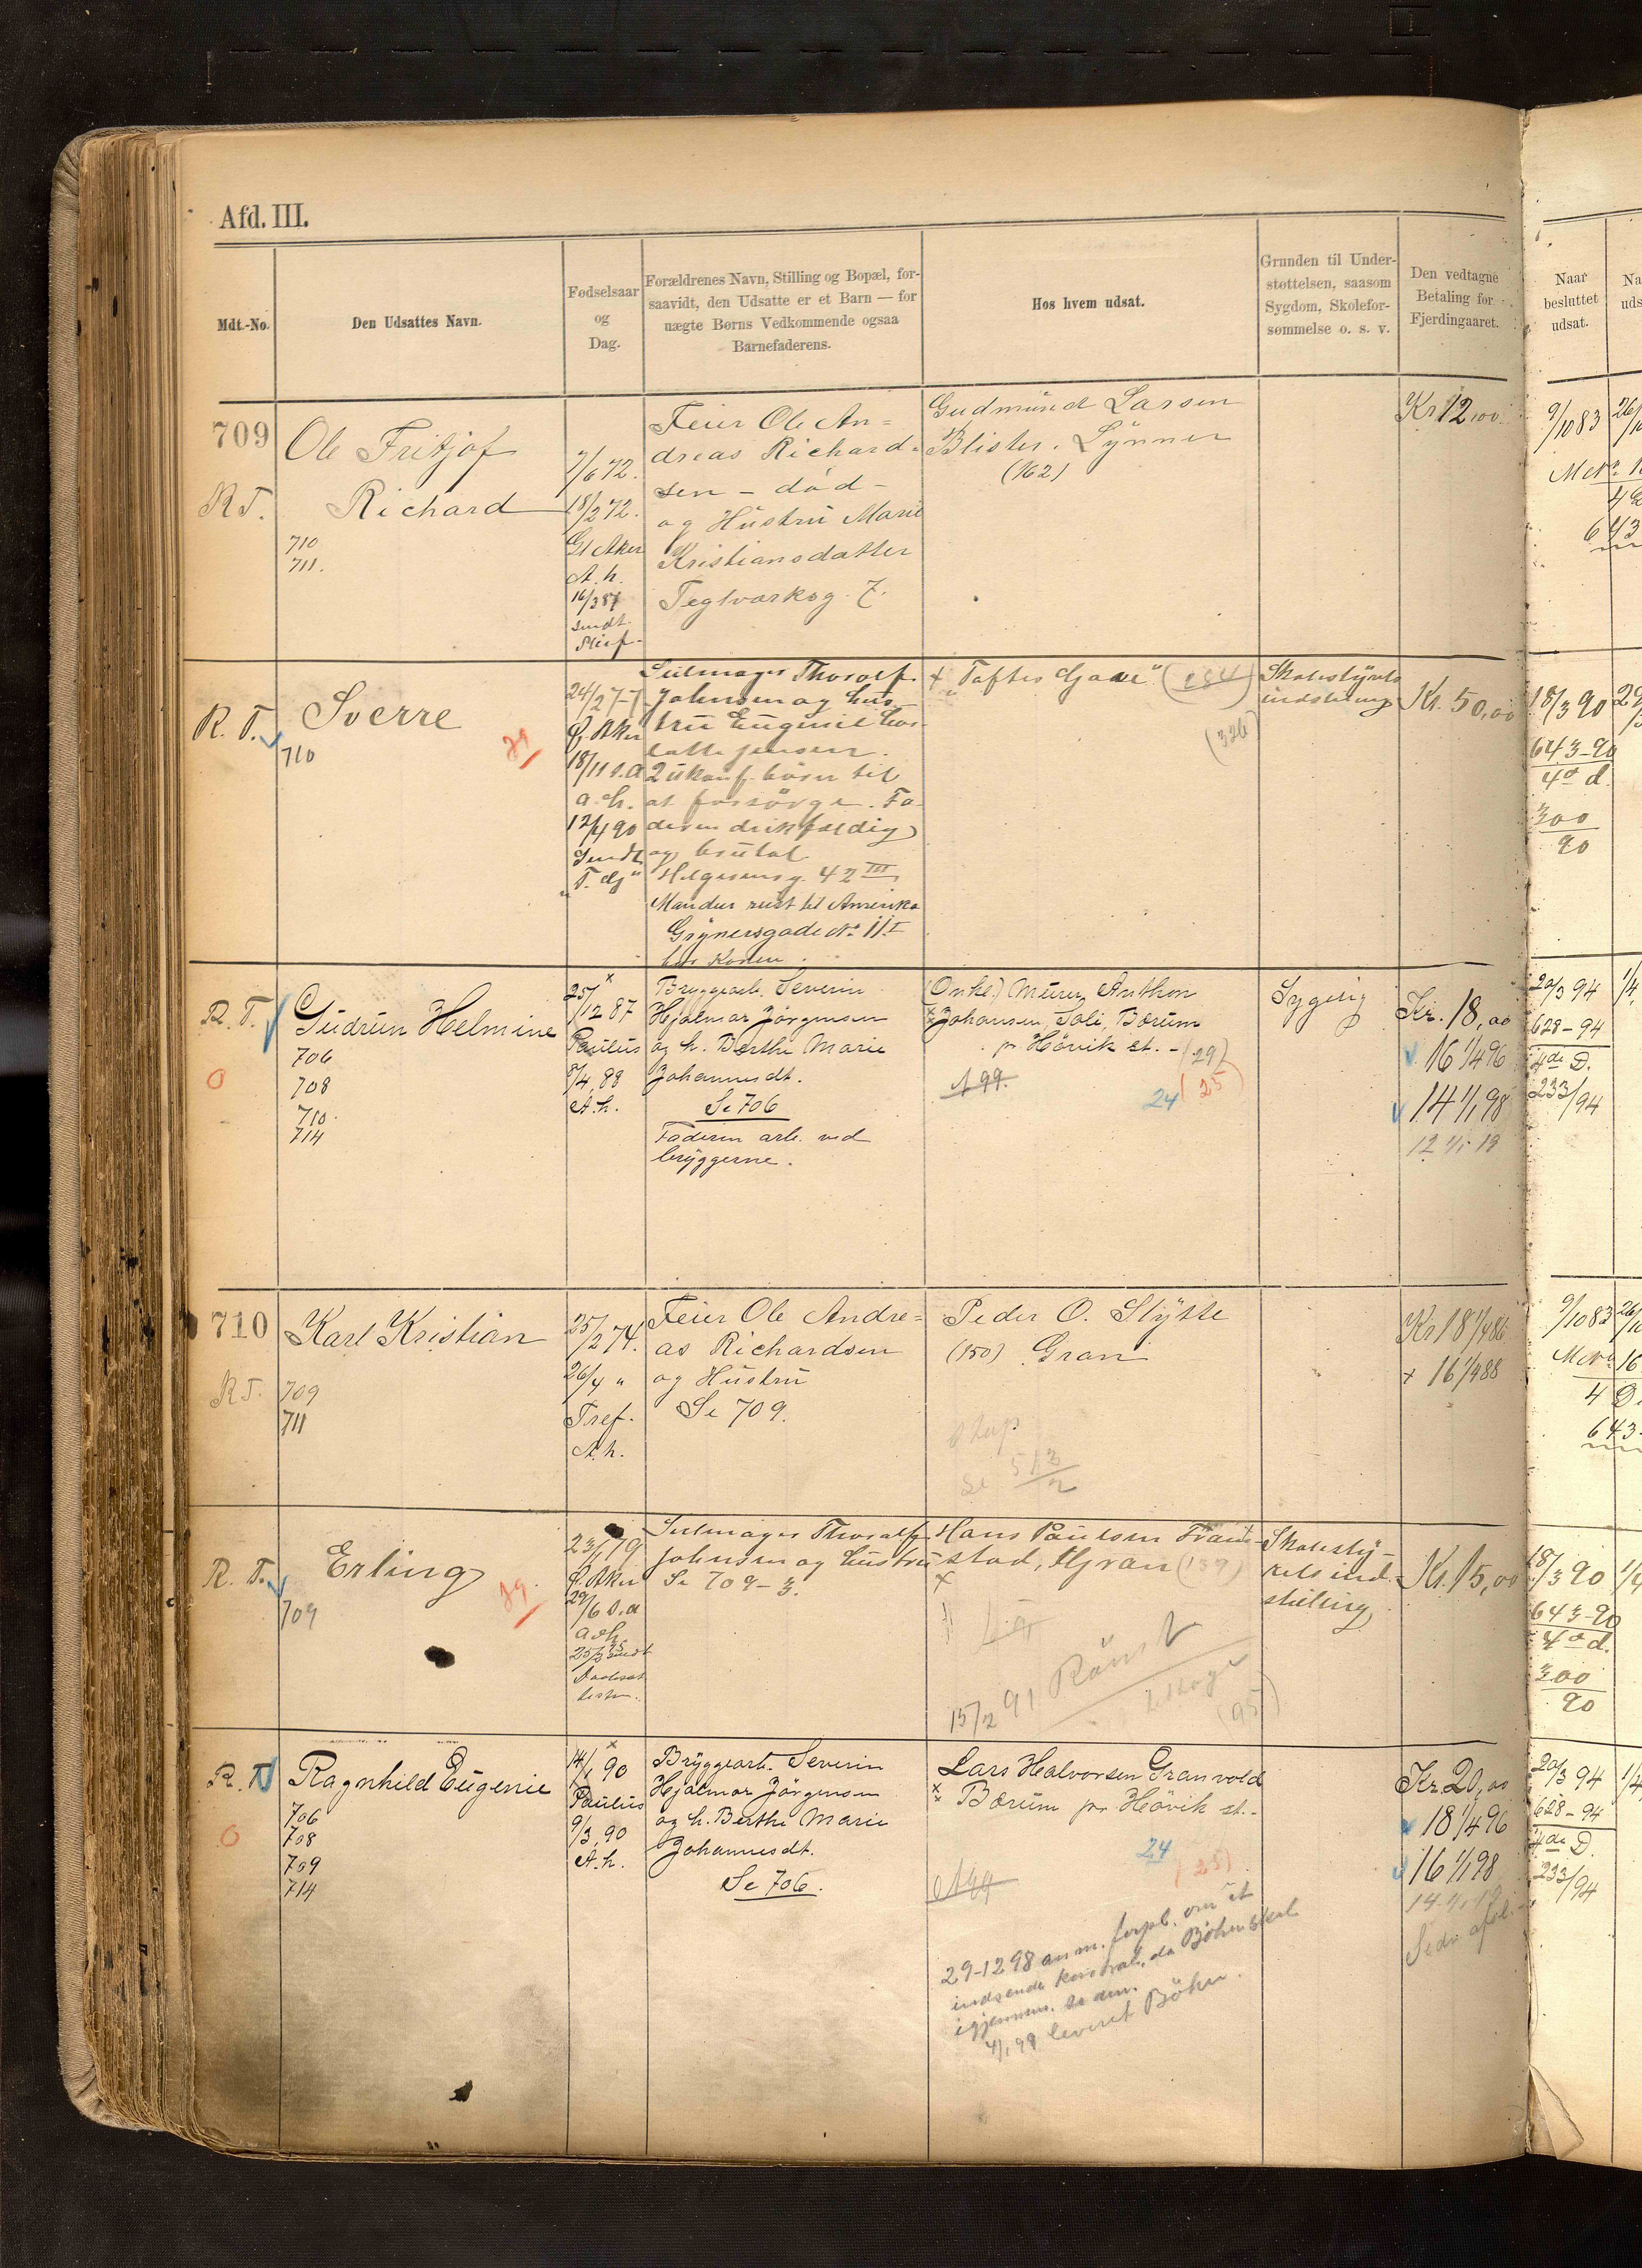 Afd. III.
Mdt.-No.
Den Udsattes Navn.
Fødselsaar
og
Dag.
Forældrenes Navn, Stilling og Bopæl, for-
saavidt, den Udsatte er et Barn — for
uægte Børns Vedkommende ogsaa
Barnefaderens.
Hos hvem udsat.
Grunden til Under-
støttelsen, saasom
Sygdom, Skolefor-
sømmelse o. s. v.
Den vedtagne
Betaling for
Fjerdingaaret.
Naar
besluttet
udsat.
Na
uds
709
R T.
Ole Fritjof
Richard
710
711.
7/6 72.
18/2 72.
Gl Aker
A. h.
16/3 87
sendt
Feier Ole An=
dreas Richard=
sen - død -
og Hustru Marie
Kristiansdatter
Teglværksg. 7.
Gudmund Larsen
Blister. Lynner
(162)
Kr 12,00.
9/10 83
643
R. T.
Sverre
710
24/2 77
G. Aker
18/11 s.a
a. h.
12/4 90
Sendt
"T. G"
Seilmager Thoralf
Johnsen og hus-
tru Eugenie
Jensen.
2 ukonf. børn til
at forsørge. Fa-
deren drikfældig
og brutal
Helgesensg. 42 III
Manden reist til Amerika
Grünersgade No 11 I
bor Konen.
+ "Toftes Gave" (184)
(326)
Skolestyrets
indstilling
Kr. 50,00
18/3 90
643-90
4o d.
300
90
R. T.
Gudrun Helmine
706
708
710
714
25/12 87
Paulus
9/4, 88
A. h.
Bryggearb. Severin
Hjalmar Jørgensen
og h. Berthe Marie
Johannesdt.
Se 706
Faderen arb. ved
bryggerne.
(Onkel) Murer Anthon
Johansen, Soli, Bærum
pr Høvik st. - (29)
24 (25)
A 99.
Sygelig
Kr. 18,00
16 1/4 96
14 1/1 98
20/3 94
628-94
4de D.
233/94
710
R T.
Karl Kristian
709
711
25/2 74.
26/4 "
Tref.
A. h.
Feier Ole Andre=
as Richardsen
og Hustru
Se 709.
Peder O. Slytte
(150) Gran
Se 513/2
Kr 18 1/4 86
+ 16 1/4 88
9/10 83
643
R. T.
Erling
709
23/1 79
G. Aker
29/6 s.a
Seilmager Thoralf
Johnsen og hustru
Se 709-3.
Hans Paulsen
stad, Gran (139)
15/2 91
(95)
Skolesty-
rets ind-
stilling
Kr. 15,00
18/3 90
643-90
4o d.
300
90
R. T.
Ragnhild Eugenie
706
708
709
714
14/1 90
Paulus
9/3, 90
A. h.
Bryggearb. Severin
Hjalmar Jørgensen
og h. Berthe Marie
Johannesdt.
Se 706.
Lars Halvorsen Granvold
Bærum pr Høvik st.
24
(25)
A 99
29-12 98 anm. forpl. om at
indsende
4/1 99 leveret Bøhn.
Kr. 20,00
18 1/4 96
16 1/1 98
20/3 94
628-94
4de D.
233/94